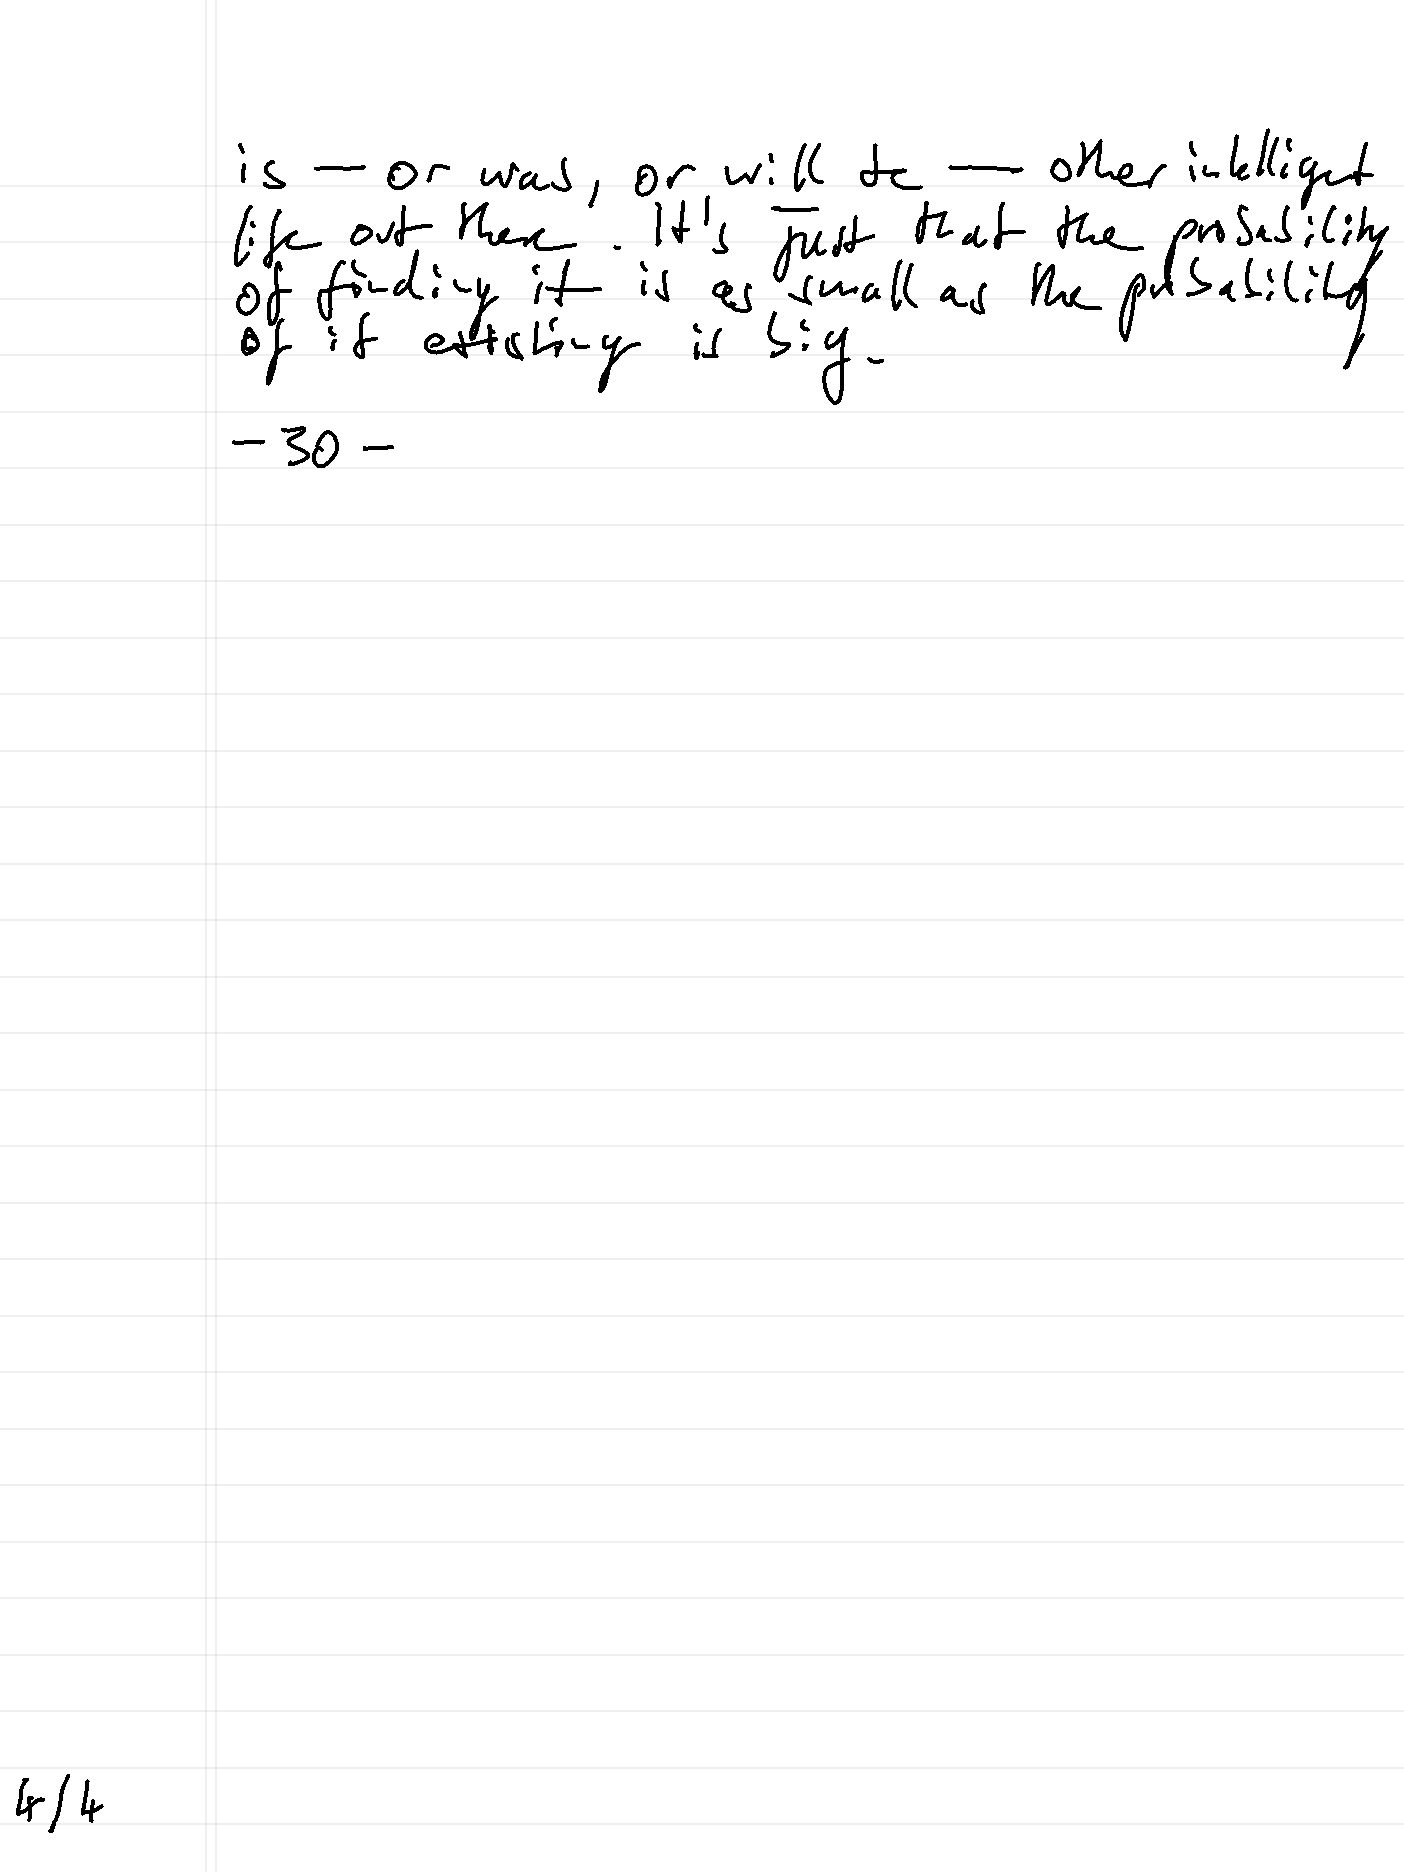 is — or was, or will be — other intelligent
life out there. It's just that the probability
of finding it is as small as the probability
of it existing is big.
- 30 -
4/4